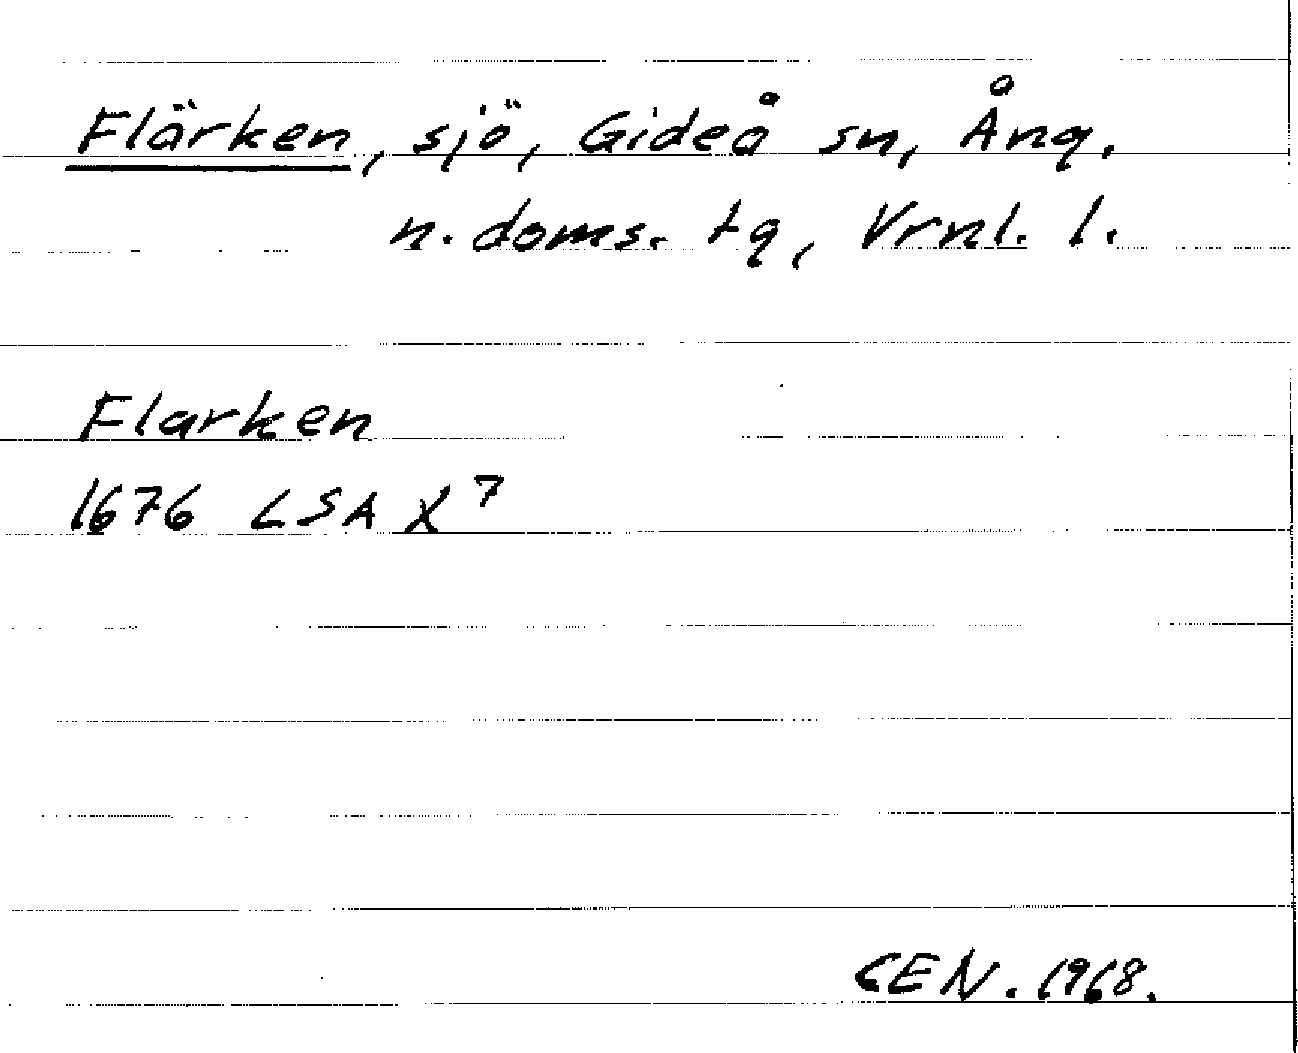 Flärken, sjö, Gideå sn, Ång.
n. doms. tg, Vrnl. l.
Flarken
1676 LSA X 7
CEN. 1968.